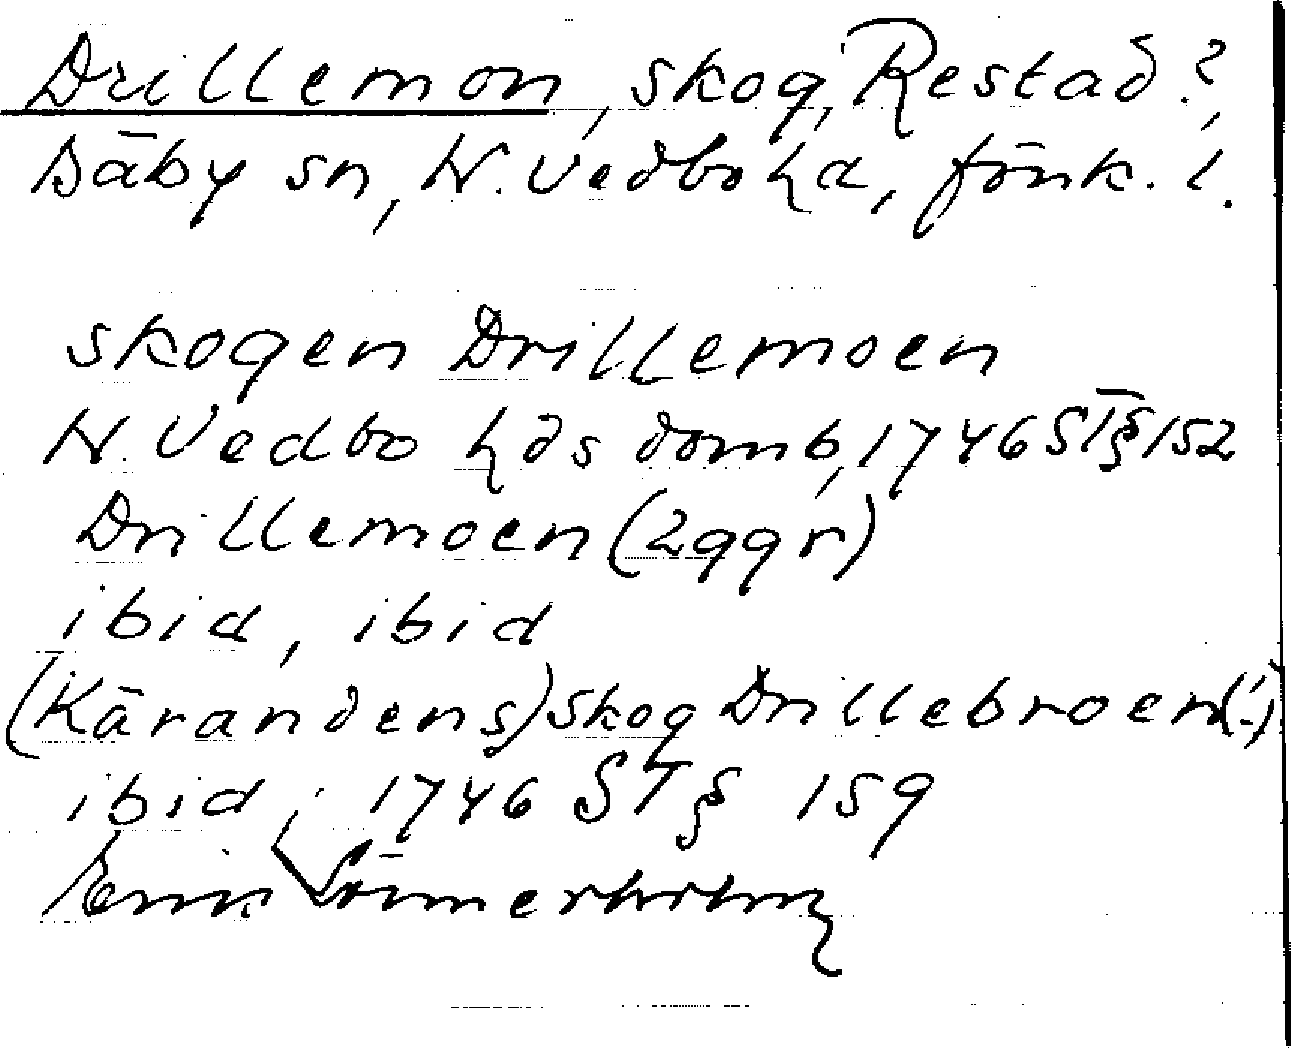 Drillemon, skog, Restad?,
Bäby sn, N. Vedbo hd, Jönk. l.
skogen Drillemoen
N. Vedbo hds domb, 1746 ST § 152
Drillemoen (2ggr)
ibid, ibid
(Kärandens) skog Drillebroen(!)
ibid, 1746 ST § 159
Erik